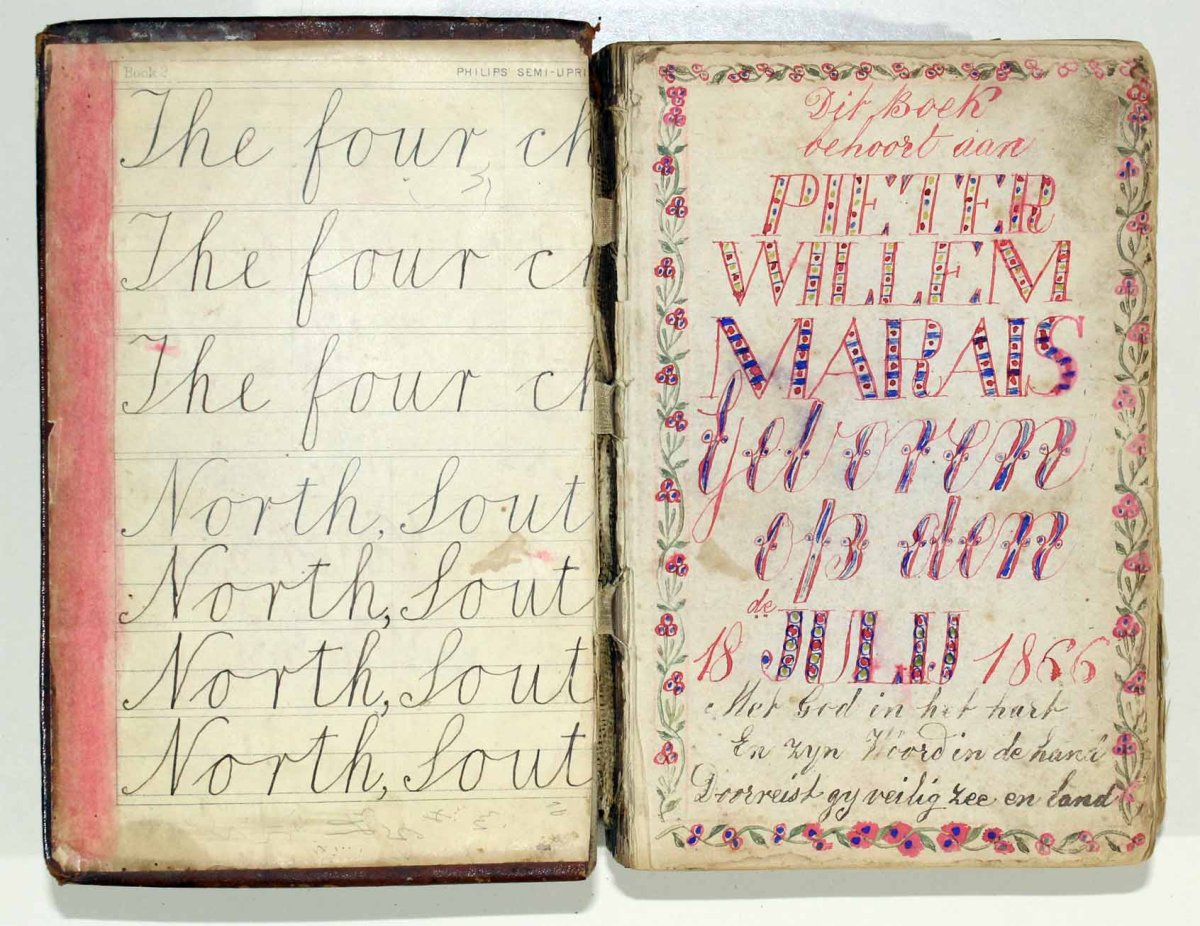 Book 2
PHILIPS' SEMI-UPRI
The four ch
The four ch
The four ch
North, Sout
North, Sout
North, Sout
North, Sout
Dit Boek
behoort aan
PIETER
WILLEM
MARAIS
Geboren
op den
18 de JULIJ 1866
Met God in het hart
En zyn Woord in de hand
Doorreist gy veilig zee en land